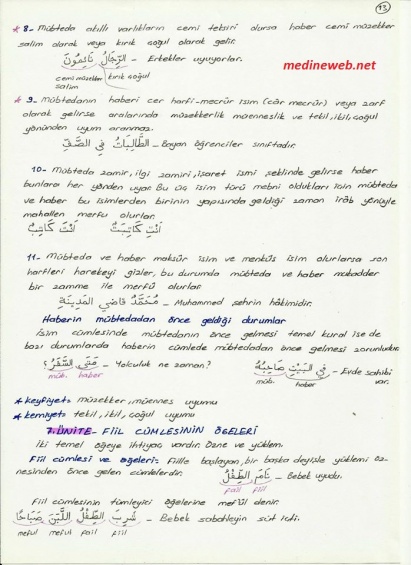 93
* 8- Mübteda akıllı varlıkların cemi teksiri olursa haber cemi müzekker
salim olarak veya kırık çoğul olarak gelir.
medineweb.net
الرِّجَالُ نَائِمُونَ - Erkekler uyuyorlar.
cemi müzekker salim
kırık çoğul
* 9- Mübtedanın haberi cer harfi-mecrûr isim (câr mecrûr) veya zarf
olarak gelirse aralarında müzekkerlik müenneslik ve tekil, ikil, çoğul
yönünden uyum aranmaz.
الطَّالِبَاتُ فِي الصَّفِّ - Bayan öğrenciler sınıftadır.
10- Mübteda zamir, ilgi zamiri, işaret ismi şeklinde gelirse haber
bunlara her yönden uyar. Bu üç isim türü mebni oldukları için mübteda
ve haber bu isimlerden birinin yapısında geldiği zaman irâb yönüyle
mahallen merfu olurlar.
أَنْتِ كَاتِبَةٌ أَنْتَ كَاتِبٌ
11- Mübteda ve haber maksûr isim ve menkûs isim olurlarsa son
harfleri harekeyi gizler, bu durumda mübteda ve haber mukadder
bir zamme ile merfû olurlar.
مُحَمَّدٌ قَاضِي المَدِينَةِ - Muhammed şehrin hâkimidir.
Haberin mübtedadan önce geldiği durumlar
İsim cümlesinde mübtedanın önce gelmesi temel kural ise de
bazı durumlarda haberin cümlede mübtedadan önce gelmesi zorunludur.
مَتَى السَّفَرُ؟ - Yolculuk ne zaman?
müb. haber
فِي البَيْتِ صَاحِبُهُ - Evde sahibi var.
müb. haber
* keyfiyet: müzekker, müennes uyumu
* kemiyet: tekil, ikil, çoğul uyumu
7.ÜNİTE- FİİL CÜMLESİNİN ÖGELERİ
İki temel öğeye ihtiyaç vardır. Özne ve yüklem.
Fiil cümlesi ve öğeleri: Fiille başlayan, bir başka deyişle yüklemi öz-
nesinden önce gelen cümlelerdir. نَامَ الطِّفْلُ - Bebek uyudu.
fail fiil
Fiil cümlesinin tümleyici öğelerine mef'ûl denir.
شَرِبَ الطِّفْلُ اللَّبَنَ صَبَاحًا - Bebek sabahleyin süt içti.
meful meful fail fiil